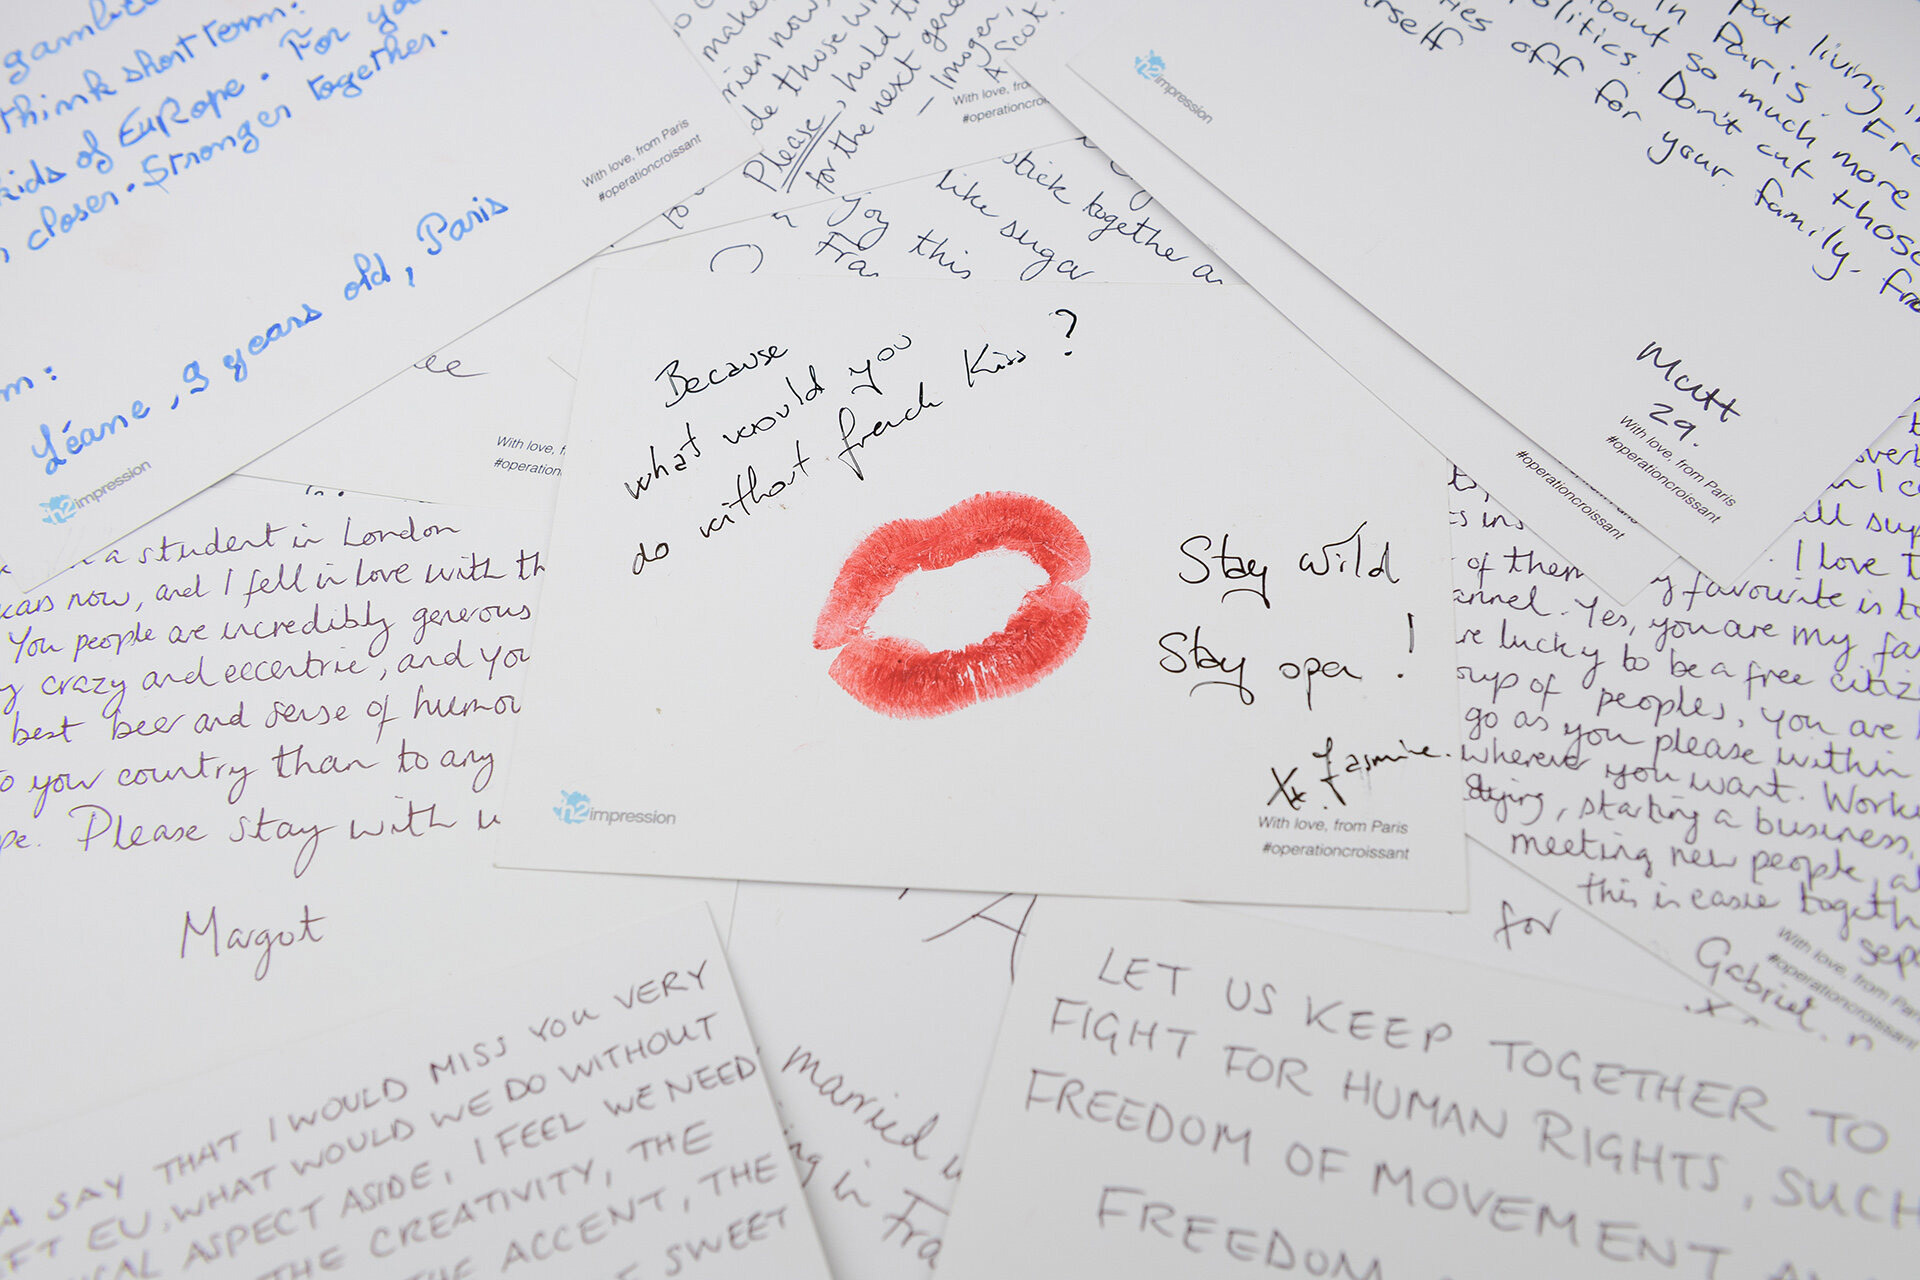 gamble
think short term.
kids of EuRope. For you
closer. Stronger together.
Léane, 9 years old, Paris
h2impression
With love, from Paris
#operationcroissant
make
those
Please, hold
for the next gene
- Imogen,
With love, fro
#operationcroi
stick together
like sugar
you this
Fra
h2impression
pat living in
in Paris. Fre
about so much more
politics. Don't cut those
ties off for your family.
rself
Matt
29.
With love, from Paris
#operationcroissant
#operationcroissant
With love, f
#operation
Because
what would you
do without french kiss?
Stay wild
Stay open!
Xx. Jasmine.
h2impression
With love, from Paris
#operationcroissant
a student in London
now, and I fell in love with th
You people are incredibly generous
crazy and eccentric, and you
best beer and sense of humou
to your country than to any
Please stay with u
Margot
I love t
of them
favourite is
Yes, you are my fa
lucky to be a free citiz
of peoples, you are
go as you please within
wherever you want. Work
starting a business,
meeting new people, al
this is easie togeth
for
Gabriel
With love, from Par
#operationcroissant
SAY THAT I WOULD MISS YOU VERY
EU. WHAT WOULD WE DO WITHOUT
ASPECT ASIDE, I FEEL WE NEED
THE CREATIVITY, THE
THE ACCENT, THE
SWEET
married
in Fra
LET US KEEP TOGETHER TO
FIGHT FOR HUMAN RIGHTS, SUCH
FREEDOM OF MOVEMENT
FREEDOM